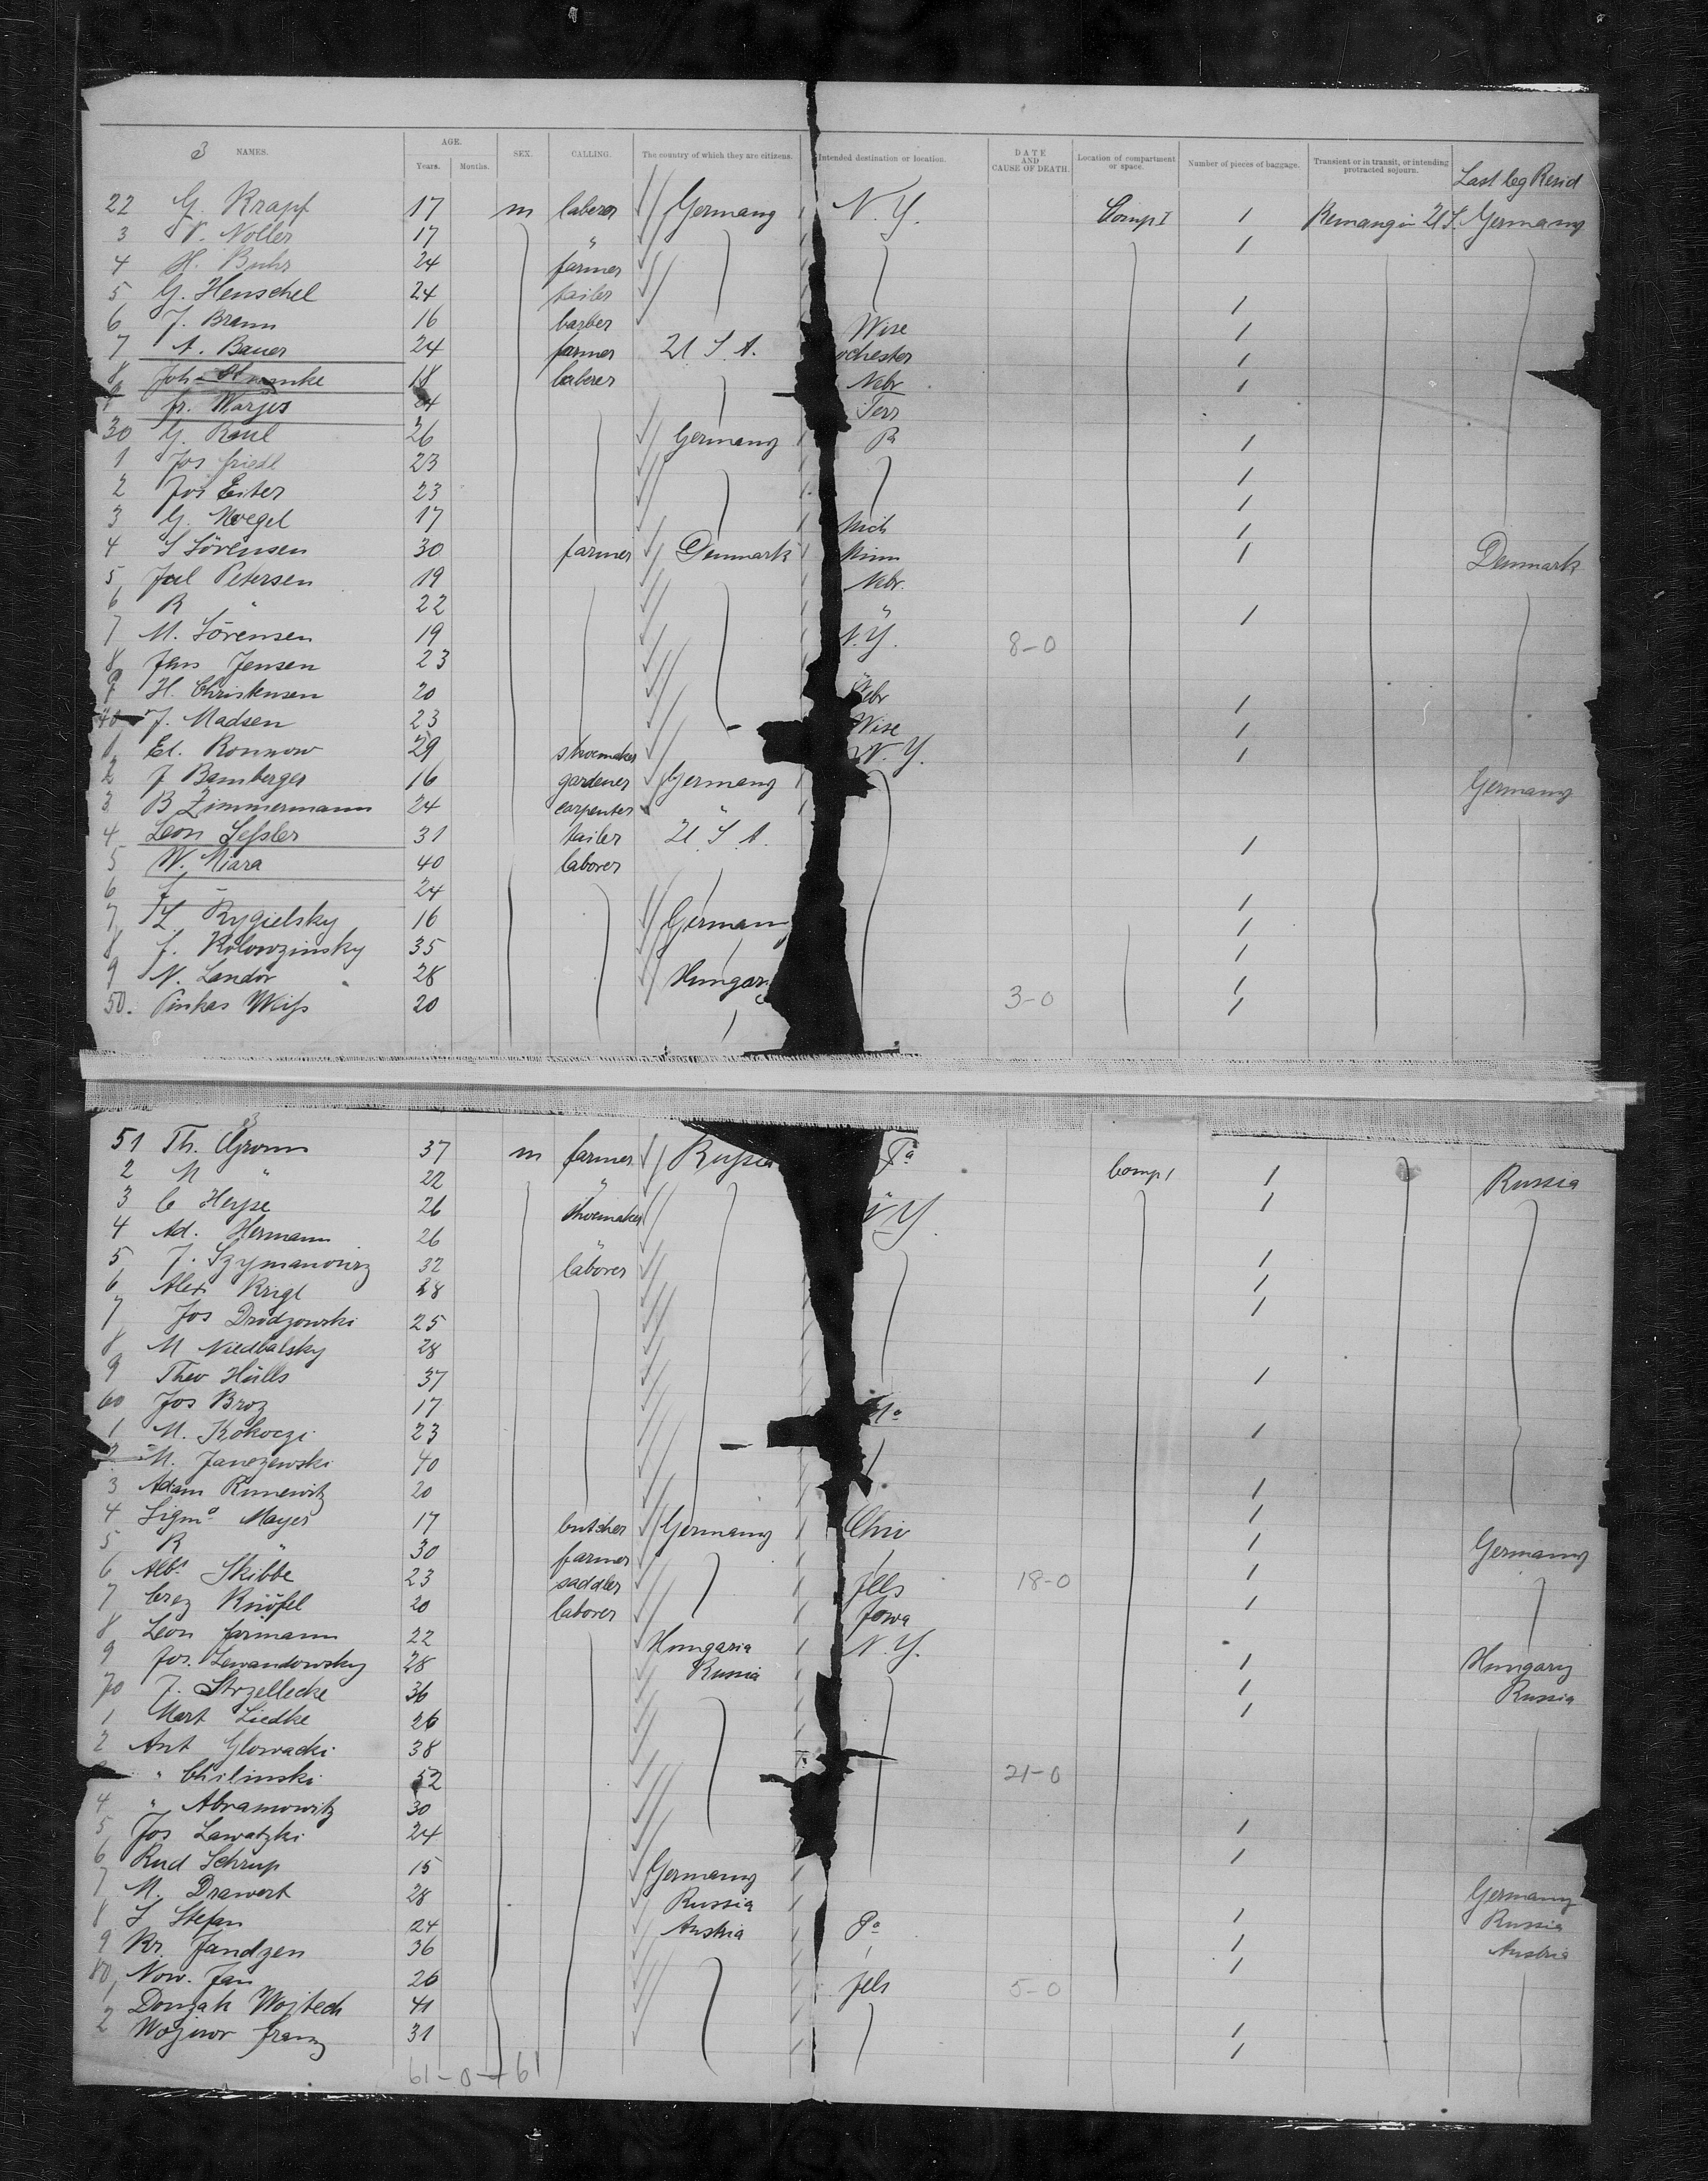 3 NAMES. AGE. Years. Months. SEX. CALLING. The country of which they are citizens. Intended destination or location. DATE AND CAUSE OF DEATH. Location of compartment or space. Number of pieces of baggage. Transient or in transit, or intending protracted sojourn. Last leg Resid
22 G. Krapf 17 m laborer Germany N.Y. Comp I 1 Remang in U.S. Germany
3 Noller 17 " 1
4 H. Buhr 24 farmer
5 G. Henschel 24 tailer 1
6 J. Braun 16 barber Wisc 1
7 A. Bauer 24 farmer U.S.A. chester 1
8 Joh. 18 laborer Nebr 1
9 Fr. Marjes 24 Terr
30 G. Raul 26 Germany 1
1 Jos Friedl 23 1
2 Jos Eiter 23 1
3 G. Noegel 17 Mich 1
4 S Sörensen 30 farmer Denmark Minn 1 Denmark
5 Jul Petersen 19 Nebr.
6 R " 22 " 1
7 M. Sörensen 19 N.Y. 8-0
8 Jens Jensen 23 "
9 H. Christensen 20 ebr 1
40 J. Madsen 23 Wisc 1
1 El. Ronnow 29 shoemaker N.Y. 1
2 J Bamberger 16 gardener Germany Germany
3 B Zimmermann 24 carpenter "
4 Leon Leßler 31 tailer U.S.A. 1
5 W. Miara 40 laborer
6 J - 24 1
7 Rygielsky 16 German 1
8 J. Kolowzinsky 35 1
9 N. Landor 28 Hungar 1
50. Pinkas Weiß 20 3-0 1
3
51 Th. Agronn 37 m farmer Rußia Pa Comp 1 1 Russia
2 M " 22 " " 1
3 C Heyse 26 shoemaker Y.
4 Ad. Hermann 26 " 1
5 J. Szymanowicz 32 laborer 1
6 Alex Krigl 28 1
7 Jos Drodzowski 25
8 M Niedbalsky 28
9 Theo Hülls 37 1
60 Jos Broz 17
1 M. Kokoczi 23 1
2 M. Janczewski 40
3 Adam Runewitz 20 1
4 Sigmd Mayer 17 butcher Germany 1
5 R " 30 farmer 1 Germany
6 Albt Skibbe 23 saddler Jlls 18-0 1
7 Knöfel 20 laborer Jowa 1
8 Leon Farmann 22 Hungaria N.Y.
9 Jos. Lewandowsky 28 Russia 1 Hungary
70 J. Strzellecke 36 1 Russia
1 Mart Liedke 26 1
2 Ant Glowacki 38
" Chilinski 52 21-0
4 " Abramowitz 30
5 Jos Lawatzki 24 1
6 Rud Schrup 15 Germany 1
7 M. Drawert 28 Russia Germany
8 S Stefan 24 Austria Pa 1 Russia
9 Kr. Jandzen 36 " 1 Austria
80 Now. Jan 26 Jlls 5-0 1
1 Donjah Wojtech 41
2 Wojnor Franz 31 1
1
61-0-61